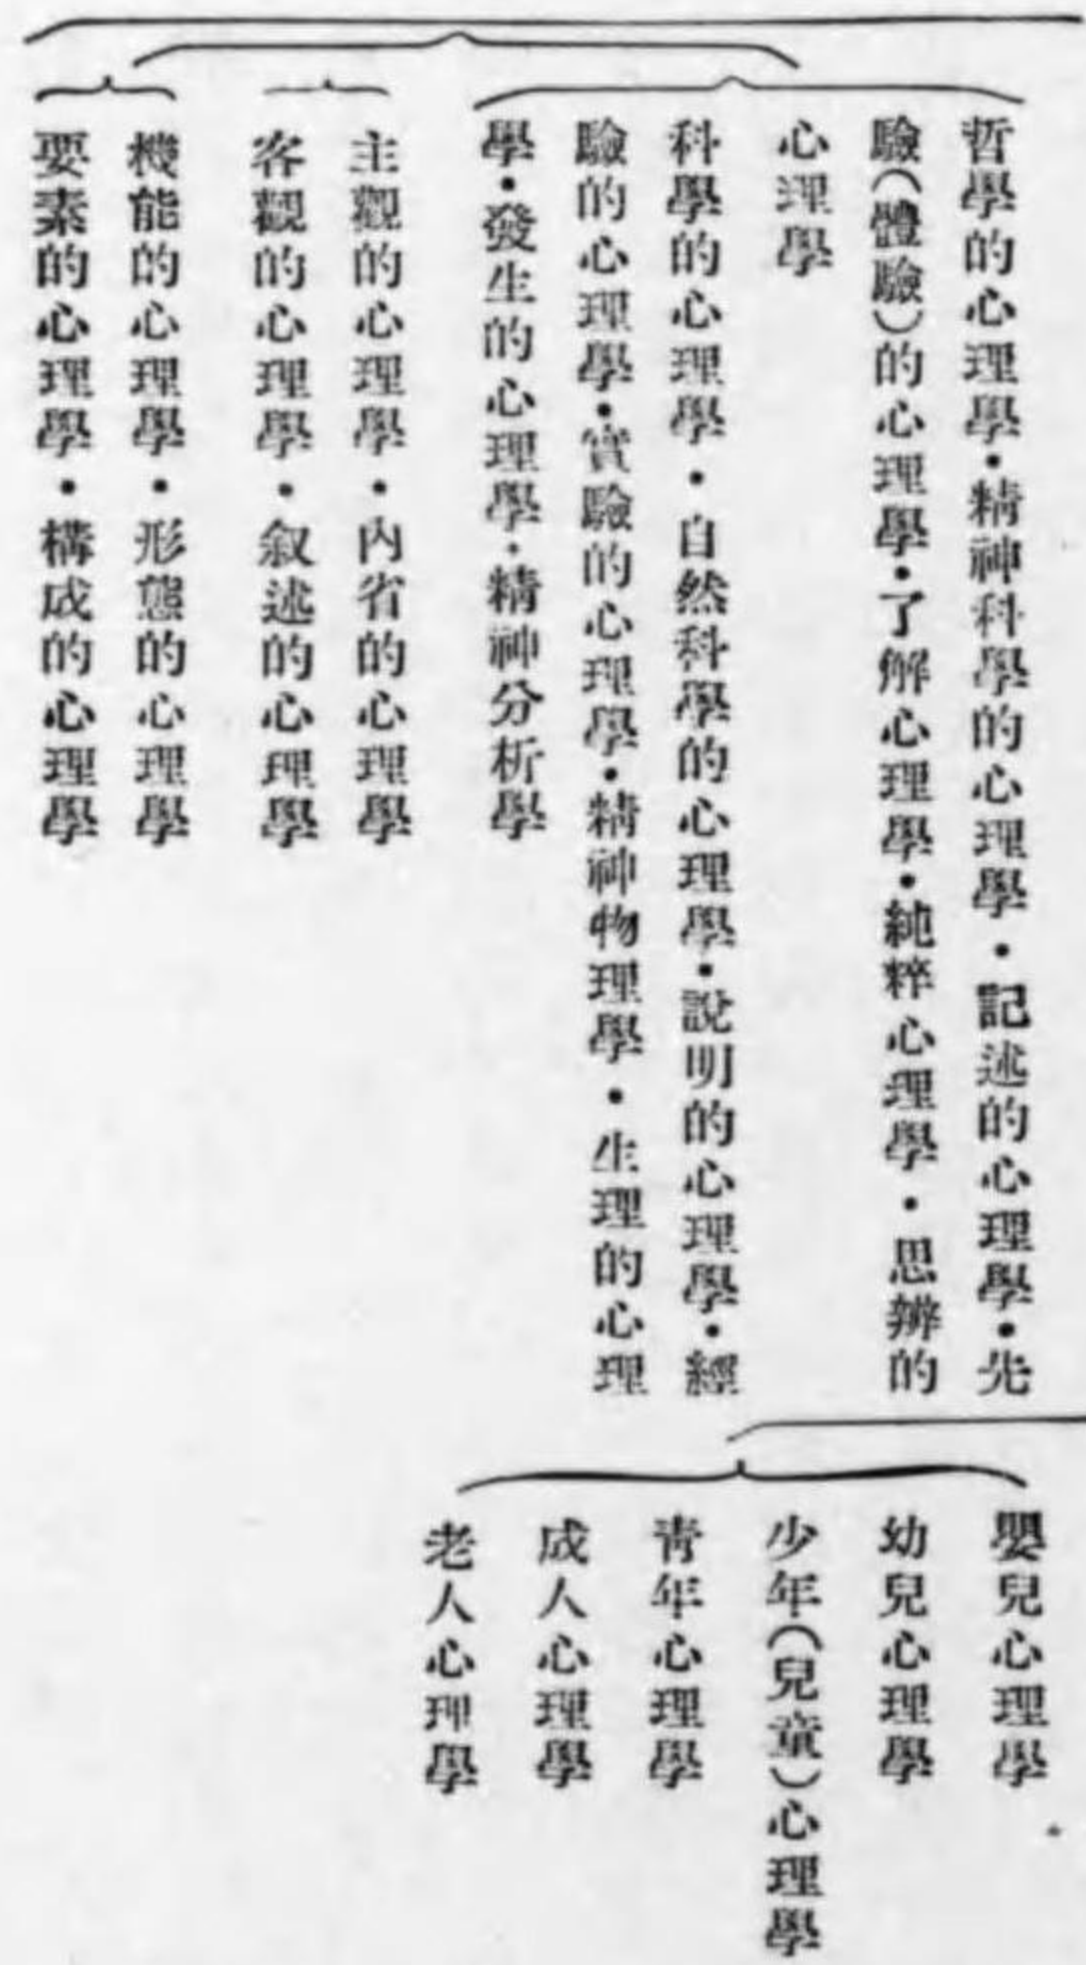 哲學的心理學・精神科學的心理學・記述的心理學・先
驗(體驗)的心理學・了解心理學・純粹心理學・思辨的
心理學
科學的心理學・自然科學的心理學・說明的心理學・經
驗的心理學・實驗的心理學・精神物理學・生理的心理
學・發生的心理學・精神分析學
主觀的心理學・內省的心理學
客觀的心理學・叙述的心理學
機能的心理學・形態的心理學
要素的心理學・構成的心理學
嬰兒心理學
幼兒心理學
少年(兒童)心理學
靑年心理學
成人心理學
老人心理學